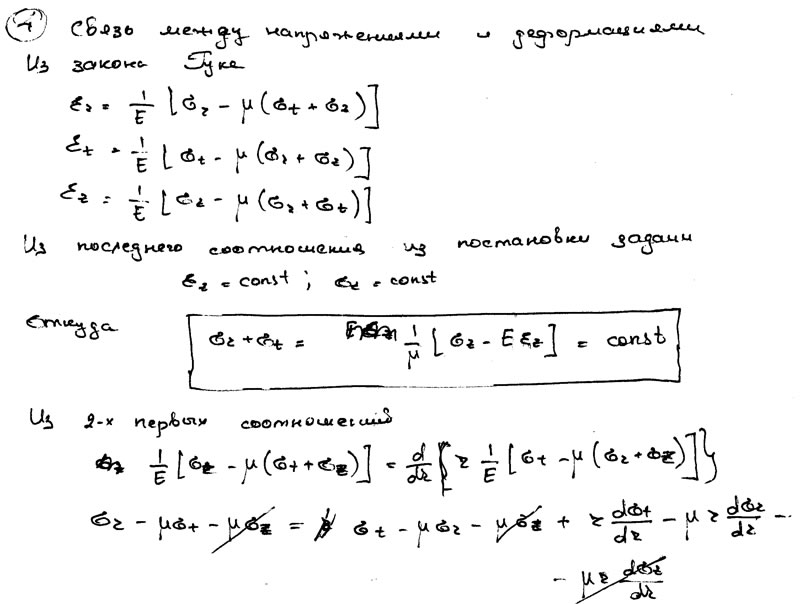 ④ Связь между напряжениями и деформациями
Из закона Гука
ε_r = 1/E [σ_r - μ(σ_t + σ_z)]
ε_t = 1/E [σ_t - μ(σ_r + σ_z)]
ε_z = 1/E [σ_z - μ(σ_r + σ_t)]
Из последнего соотношения из постановки задачи
ε_z = const ; σ_z = const
откуда σ_r + σ_t = 1/μ [σ_z - E ε_z] = const
Из 2-х первых соотношений
1/E [σ_r - μ(σ_t + σ_z)] = d/dr { r 1/E [σ_t - μ(σ_r + σ_z)] }
σ_r - μσ_t - μσ_z = σ_t - μσ_r - μσ_z + r dσ_t/dr - μ r dσ_r/dr -
- μr dσ_z/dr